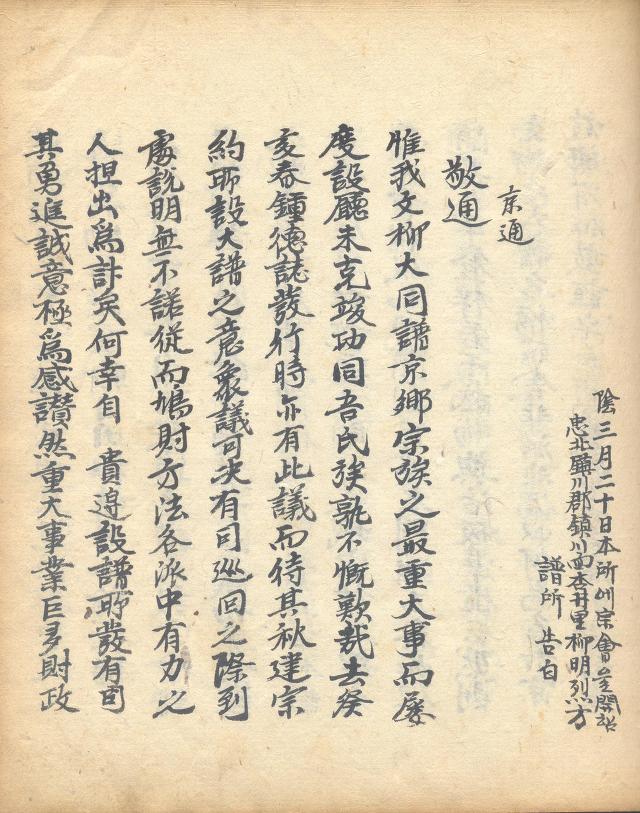 陰三月二十日本所以宗會를開
忠北鎭川郡鎭川面杏井里柳明烈方
譜所 告白
京通
敬通
惟我文柳大同譜京鄕宗族之最重大事而屢
度設廳未克竣功同吾氏族孰不慨歎哉去癸
亥春鍾德誌發行時亦有此議而待其秋建宗
約所設大譜之意衆議可决有司巡回之際到
處說明無不諾從而鳩財方法各派中有力之
人担出爲計矣何幸自 貴邊設譜所發有司
其勇進誠意極爲感讚然重大事業巨多財政